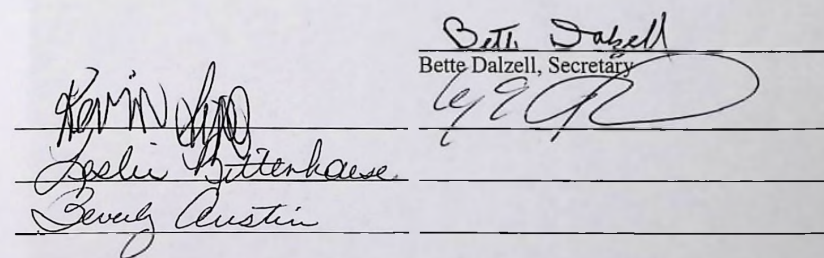 Bette Dalzell
Bette Dalzell, Secretary
Kevin
Leslie Rittenhouse
Beverly Austin